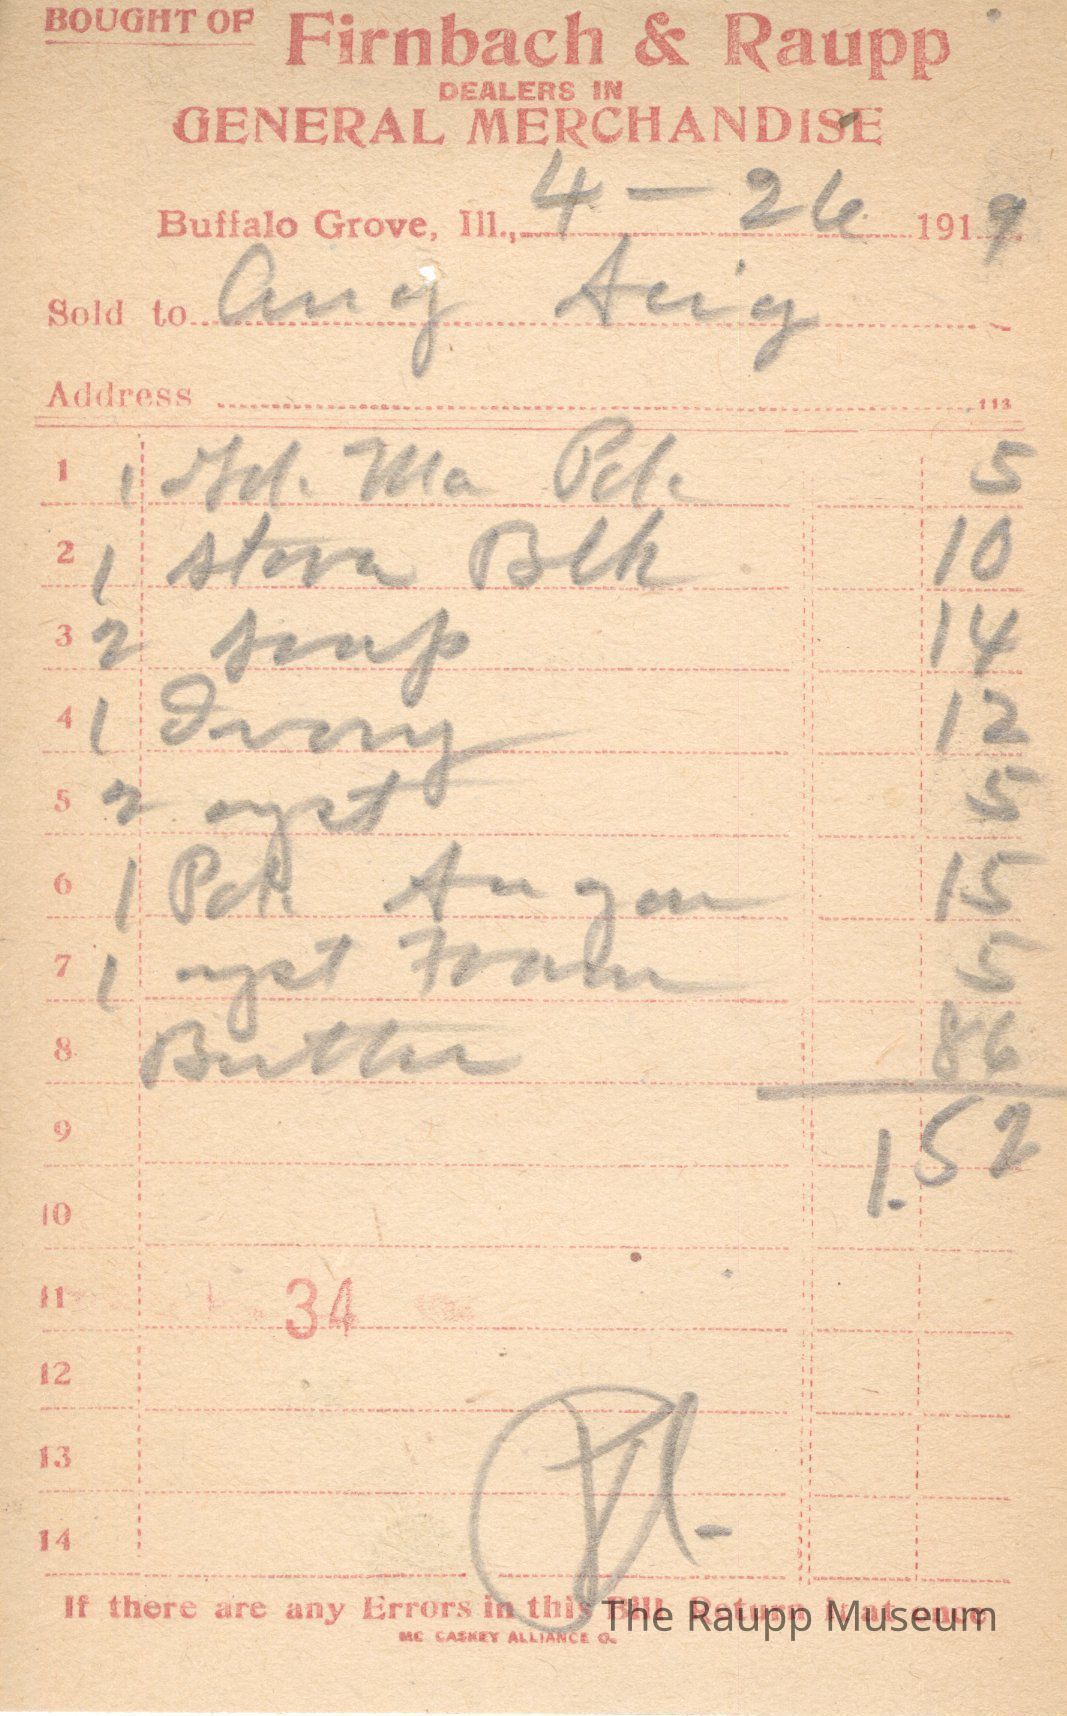 BOUGHT OF Firnbach & Raupp
DEALERS IN
GENERAL MERCHANDISE
Buffalo Grove, Ill., 4 - 26 1919
Sold to Aug
Address 113
1 1 Pck. 5
2 1 Stove Blk 10
3 2 soap 14
4 1 Ivory 12
5 2 5
6 1 Pck 15
7 1 5
8 Butter 86
9 1.52
10
11 34
12
13
14 Pd.
If there are any Errors in this Bill Return it at once
MC CASKEY ALLIANCE O.
The Raupp Museum